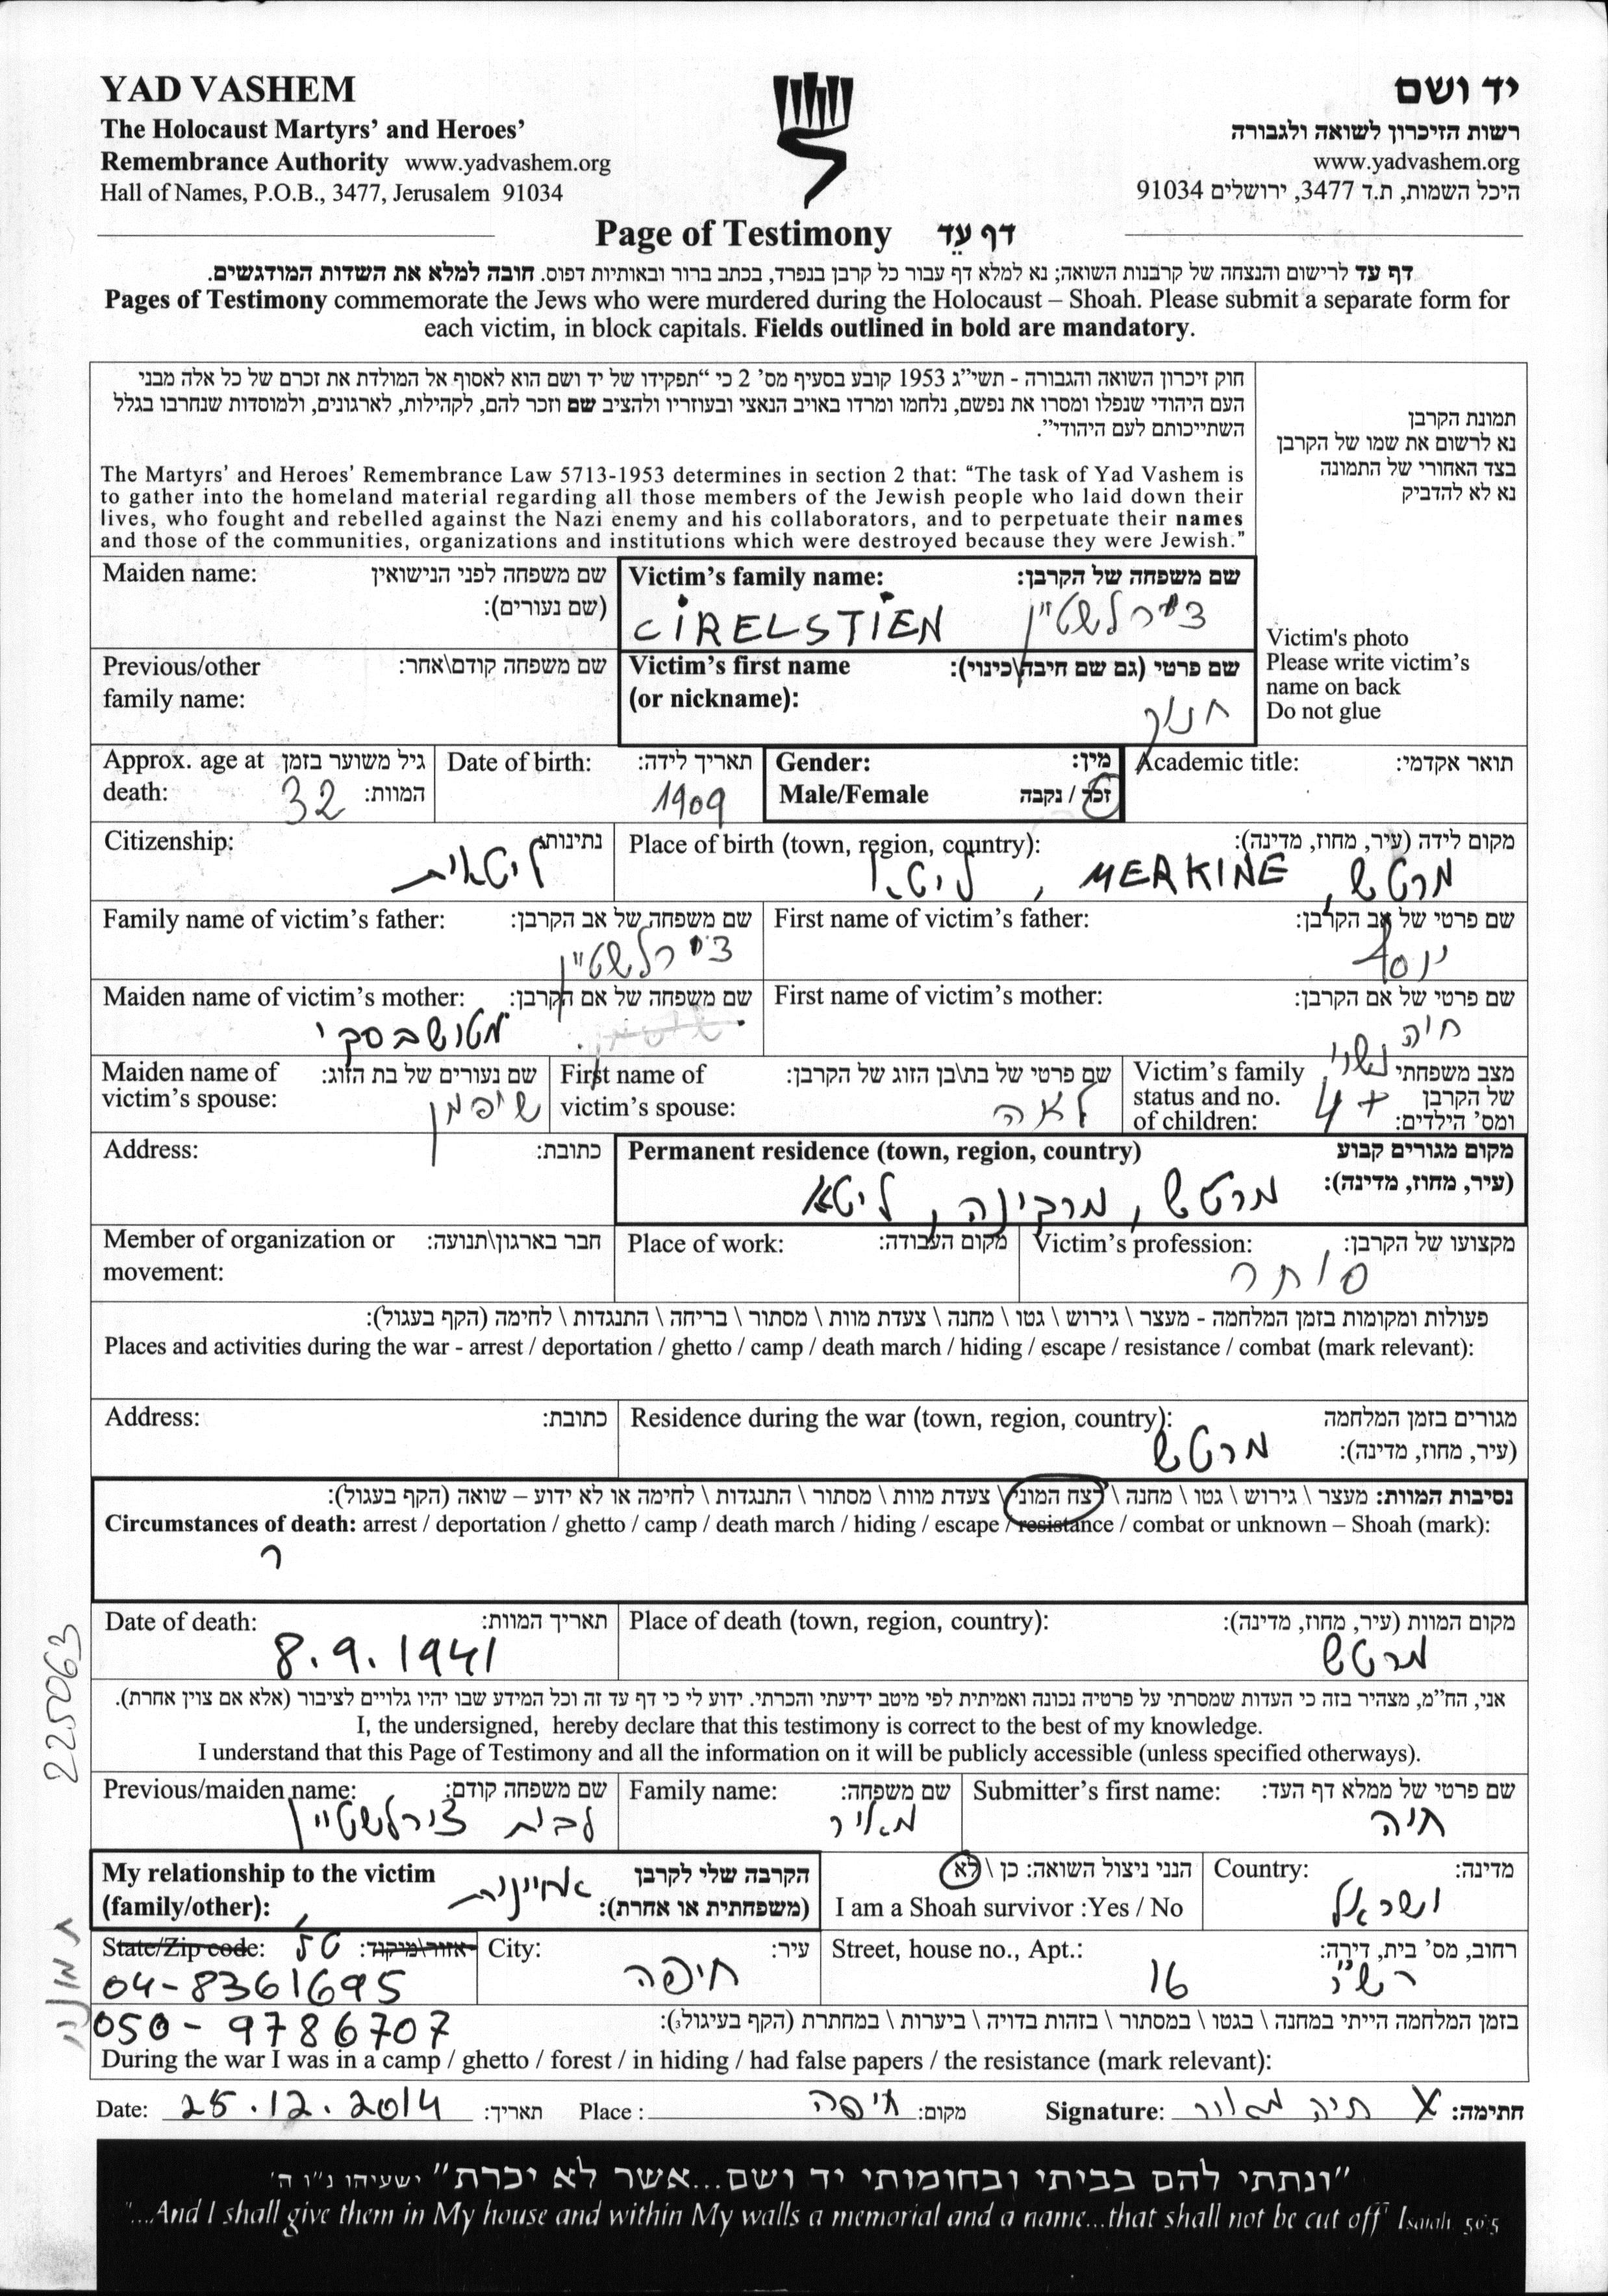 YAD VASHEM
The Holocaust Martyrs’ and Heroes’
Remembrance Authority www.yadvashem.org
Hall of Names, P.O.B., 3477, Jerusalem 91034
יד ושם
רשות הזיכרון לשואה ולגבורה
www.yadvashem.org
היכל השמות, ת.ד 3477, ירושלים 91034
Page of Testimony דף עֵד
דף עד לרישום והנצחה של קרבנות השואה; נא למלא דף עבור כל קרבן בנפרד, בכתב ברור ובאותיות דפוס. חובה למלא את השדות המודגשים.
Pages of Testimony commemorate the Jews who were murdered during the Holocaust – Shoah. Please submit a separate form for
each victim, in block capitals. Fields outlined in bold are mandatory.
חוק זיכרון השואה והגבורה - תשי״ג 1953 קובע בסעיף מס׳ 2 כי “תפקידו של יד ושם הוא לאסוף אל המולדת את זכרם של כל אלה מבני
העם היהודי שנפלו ומסרו את נפשם, נלחמו ומרדו באויב הנאצי ובעוזריו ולהציב שם וזכר להם, לקהילות, לארגונים, ולמוסדות שנחרבו בגלל
השתייכותם לעם היהודי”.
The Martyrs’ and Heroes’ Remembrance Law 5713-1953 determines in section 2 that: “The task of Yad Vashem is
to gather into the homeland material regarding all those members of the Jewish people who laid down their
lives, who fought and rebelled against the Nazi enemy and his collaborators, and to perpetuate their names
and those of the communities, organizations and institutions which were destroyed because they were Jewish.”
תמונת הקרבן
נא לרשום את שמו של הקרבן
בצד האחורי של התמונה
נא לא להדביק
Victim's photo
Please write victim’s
name on back
Do not glue
Maiden name: שם משפחה לפני הנישואין
(שם נעורים):
Victim’s family name: שם משפחה של הקרבן:
CIRELSTIEN צירלשטיין
Previous/other שם משפחה קודם\אחר:
family name:
Victim’s first name שם פרטי (גם שם חיבה\כינוי):
(or nickname):
חנוך
Approx. age at גיל משוער בזמן
death: המוות: 32
Date of birth: תאריך לידה:
1909
Gender: מין:
Male/Female זכר / נקבה
Academic title: תואר אקדמי:
Citizenship: נתינות:
ליטאית
Place of birth (town, region, country): מקום לידה (עיר, מחוז, מדינה):
מרטש, MERKINE, ליטא
Family name of victim’s father: שם משפחה של אב הקרבן:
צירלשטיין
First name of victim’s father: שם פרטי של אב הקרבן:
יוסף
Maiden name of victim’s mother: שם משפחה של אם הקרבן:
מטושבסקי
First name of victim’s mother: שם פרטי של אם הקרבן:
חיה
Maiden name of שם נעורים של בת הזוג:
victim’s spouse: שיפמן
First name of שם פרטי של בת\בן הזוג של הקרבן:
victim’s spouse: לאה
Victim’s family מצב משפחתי נשוי
status and no. של הקרבן
of children: ומס׳ הילדים: 4 +
Address: כתובת:
Permanent residence (town, region, country) מקום מגורים קבוע
(עיר, מחוז, מדינה):
מרטש, מרקינה, ליטא
Member of organization or חבר בארגון\תנועה:
movement:
Place of work: מקום העבודה:
Victim’s profession: מקצועו של הקרבן:
סוחר
פעולות ומקומות בזמן המלחמה - מעצר \ גירוש \ גטו \ מחנה \ צעדת מוות \ מסתור \ בריחה \ התנגדות \ לחימה (הקף בעגול):
Places and activities during the war - arrest / deportation / ghetto / camp / death march / hiding / escape / resistance / combat (mark relevant):
Address: כתובת:
Residence during the war (town, region, country): מגורים בזמן המלחמה
(עיר, מחוז, מדינה):
מרטש
נסיבות המוות: מעצר \ גירוש \ גטו \ מחנה \ רצח המוני \ צעדת מוות \ מסתור \ התנגדות \ לחימה או לא ידוע – שואה (הקף בעגול):
Circumstances of death: arrest / deportation / ghetto / camp / death march / hiding / escape / resistance / combat or unknown – Shoah (mark):
Date of death: תאריך המוות:
8.9.1941
Place of death (town, region, country): מקום המוות (עיר, מחוז, מדינה):
מרטש
אני, הח״מ, מצהיר בזה כי העדות שמסרתי על פרטיה נכונה ואמיתית לפי מיטב ידיעתי והכרתי. ידוע לי כי דף עד זה וכל המידע שבו יהיו גלויים לציבור (אלא אם צוין אחרת).
I, the undersigned, hereby declare that this testimony is correct to the best of my knowledge.
I understand that this Page of Testimony and all the information on it will be publicly accessible (unless specified otherways).
Previous/maiden name: שם משפחה קודם:
לבית צירלשטיין
Family name: שם משפחה:
מאיר
Submitter’s first name: שם פרטי של ממלא דף העד:
חיה
My relationship to the victim הקרבה שלי לקרבן
(family/other): (משפחתית או אחרת):
אחיינית
הנני ניצול השואה: כן \ לא
I am a Shoah survivor :Yes / No
Country: מדינה:
ישראל
State/Zip code: אזור\מיקוד: טל
04-8361695
City: עיר:
חיפה
Street, house no., Apt.: רחוב, מס׳ בית, דירה:
רש״י 16
050-9786707
בזמן המלחמה הייתי במחנה \ בגטו \ במסתור \ בזהות בדויה \ ביערות \ במחתרת (הקף בעיגול):
During the war I was in a camp / ghetto / forest / in hiding / had false papers / the resistance (mark relevant):
Date: 25.12.2014 תאריך: Place : חיפה מקום: Signature: חיה מאיר X חתימה:
225063
תמונה
״ונתתי להם בביתי ובחומותי יד ושם...אשר לא יכרת״ ישעיהו נ״ו ה׳
"...And I shall give them in My house and within My walls a memorial and a name...that shall not be cut off" Isaiah 56:5